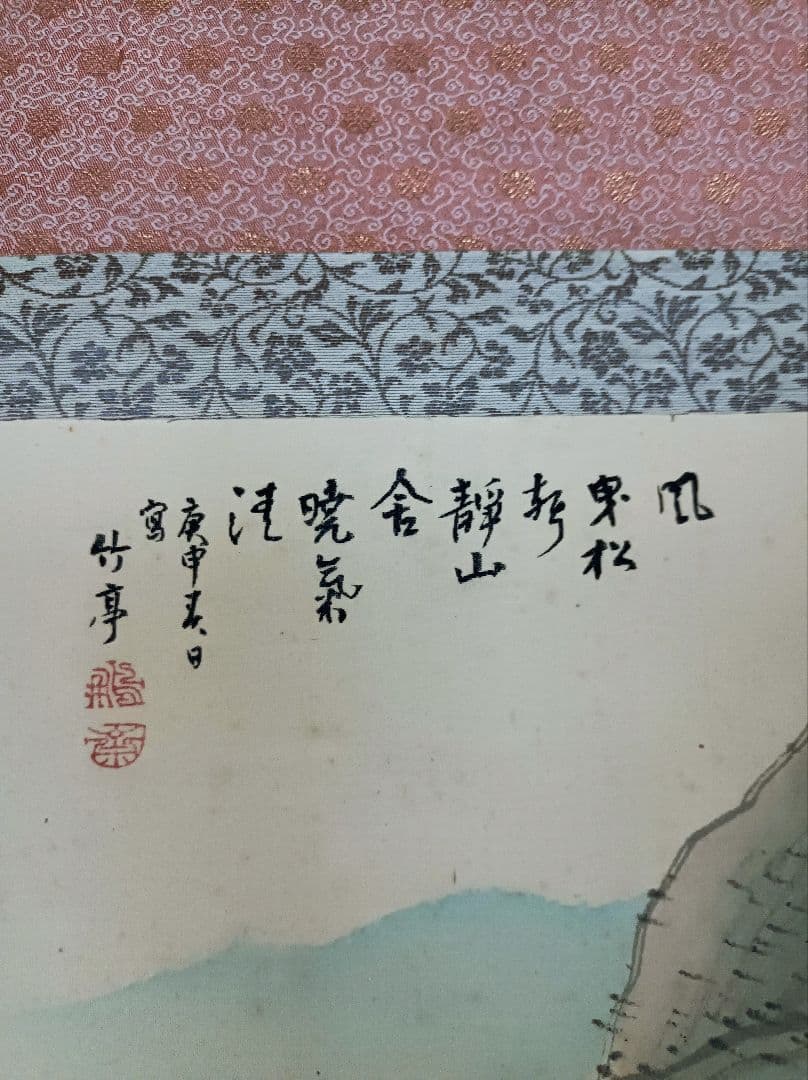 風
曳松
靜山
含
曉氣
清
庚申春日
寫
竹亭